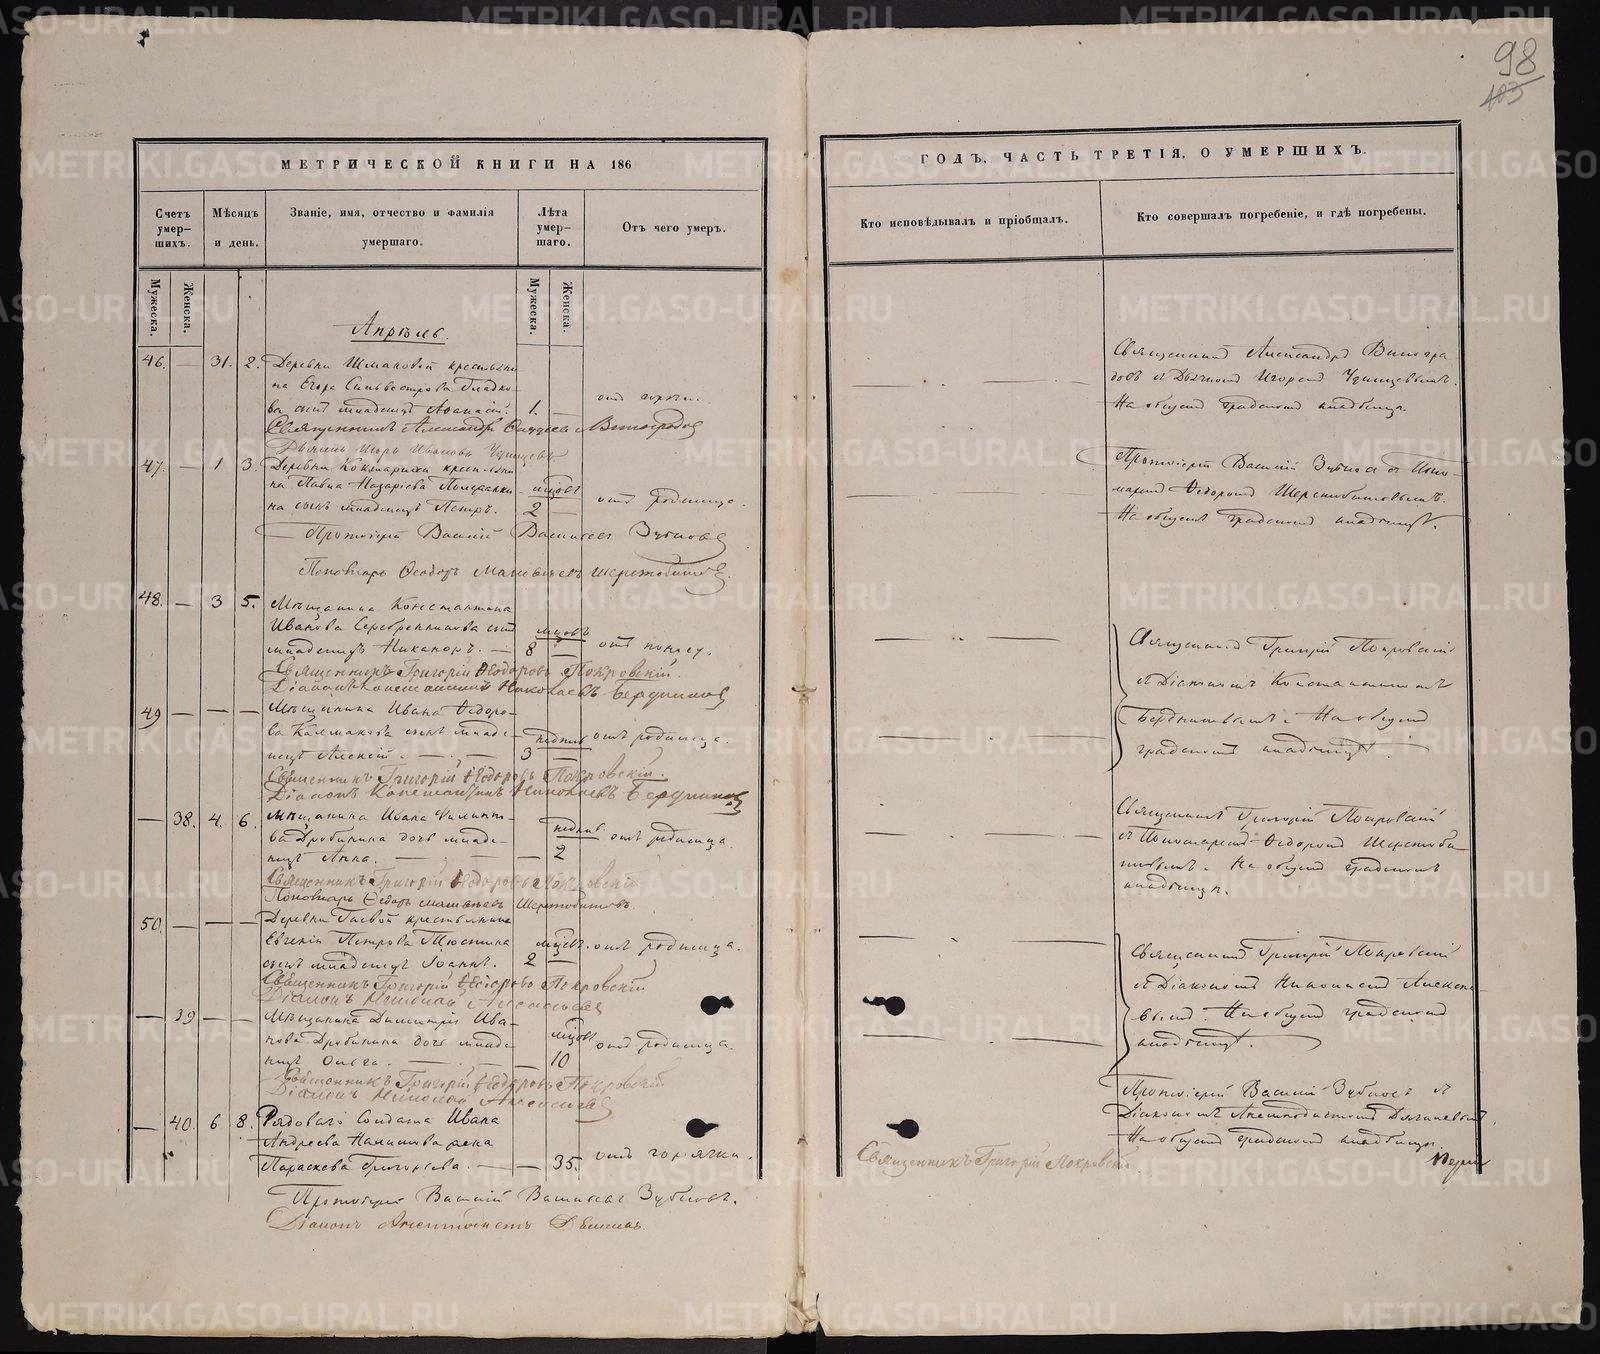 98
403
МЕТРИЧЕСКОЙ КНИГИ НА 186
Счетъ умер-шихъ.
Мѣсяцъ и день.
Званіе, имя, отчество и фамилія умершаго.
Лѣта умер-шаго.
Отъ чего умеръ.
Мужеска.
Женска.
Мужеска.
Женска.
Апрѣль.
46. — 31. 2. Деревни Шмаковой крестьяни
на Егора Сильвестрова Гладко-
ва сынъ младенецъ Афанасій. 1. —
Священникъ Александръ Виноградов
Дьячекъ Игорь Ивановъ Чунищевъ
47. — 1 3. Деревни крестьяни
на Павла Назарієва
на сынъ младенецъ Петръ. мцовъ 2 — отъ родимца.
Протоіерей Василій Васильевъ Зубковъ
Пономарь Ѳеодоръ Матвѣевъ Шерстобитовъ.
48. — 3 5. Мѣщанина Константина
Иванова Серебренникова сынъ
младенецъ Никаноръ. — мцовъ 8 — отъ поносу.
Священникъ Григорій Ѳеодоровъ Покровскій.
Діаконъ Константинъ Николаевъ Бердниковъ
49 — — — Мѣщанина Ивана Ѳедоро-
ва Калмакова сынъ младе-
нецъ Алексій. — недѣль 3 — отъ родимца.
Священникъ Григорій Ѳеодоровъ Покровскій.
Діаконъ Константинъ Николаевъ Бердниковъ
— 38. 4. 6. Мѣщанина Ивана Филипо-
ва Дробинина дочь младе-
нецъ Анна. — — недѣль 2 отъ родимца.
Священникъ Григорій Ѳеодоровъ Покровскій
Пономарь Ѳедоръ Матвѣевъ Шерстобитовъ.
50. — — — Деревни Гаевой крестьянина
Евгенія Петрова Тюстина
сынъ младенецъ Іоаннъ. мцов. 2 — отъ родимца.
Священникъ Григорій Ѳеодоровъ Покровскій
Діаконъ Николай Алексѣевъ
— 39 — — Мѣщанина Димитрія Ива-
нова Дробинина дочь младе-
нецъ Ольга. — — мцовъ 10 отъ родимца.
Священникъ Григорій Ѳеодоровъ Покровскій
Діаконъ Николай Алексѣевъ
— 40. 6 8. Рядоваго Солдата Ивана
Андреева жена
Параскева Григорьева. — — 35. отъ горячки.
Протоіерей Василій Васильевъ Зубковъ.
Діаконъ
ГОДЪ, ЧАСТЬ ТРЕТІЯ, О УМЕРШИХЪ.
Кто исповѣдывалъ и пріобщалъ.
Кто совершалъ погребеніе, и гдѣ погребены.
Священникъ Александръ Виногра
довъ съ Дьячкомъ Игоремъ Чунищевымъ.
На общемъ градскомъ кладбищѣ.
Протоіерей Василій Зубковъ съ Поно-
маремъ Ѳедоромъ Шерстобитовымъ.
На общемъ градскомъ кладбищѣ.
Священникъ Григорій Покровскій
съ Діакономъ Константиномъ
Бердниковымъ. На общемъ
градскомъ кладбищѣ.
Священникъ Григорій Покровскій
съ Пономаремъ Ѳедоромъ Шерстоби
товымъ. На общемъ градскомъ
кладбищѣ.
Священникъ Григорій Покровскій
съ Діакономъ Николаемъ Алексѣ
вымъ. На общемъ градскомъ
кладбищѣ.
Протоіерей Василій Зубковъ съ
Діакономъ
На общемъ градскомъ кладбищѣ.
Священникъ Григорій Покровскій
METRIKI.GASO-URAL.RU